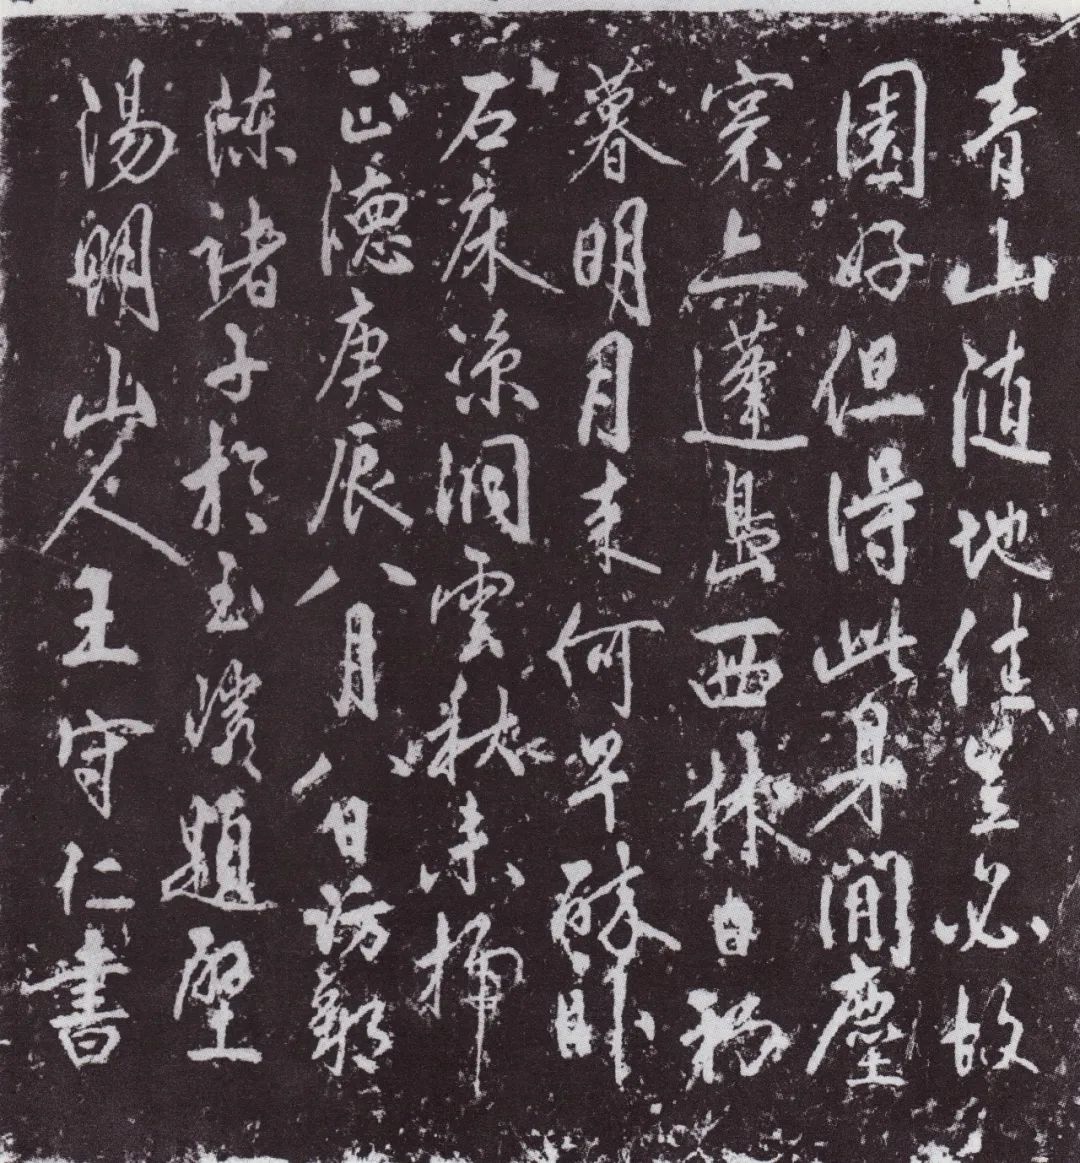 青山随地佳豈必故
園好但得此身閒塵
寰亦蓬島西林日初
暮明月来何早醉卧
石床涼洞雲秋未掃
正德庚辰八月八日訪鄒
陳諸子於玉題壁
陽明山人王守仁書